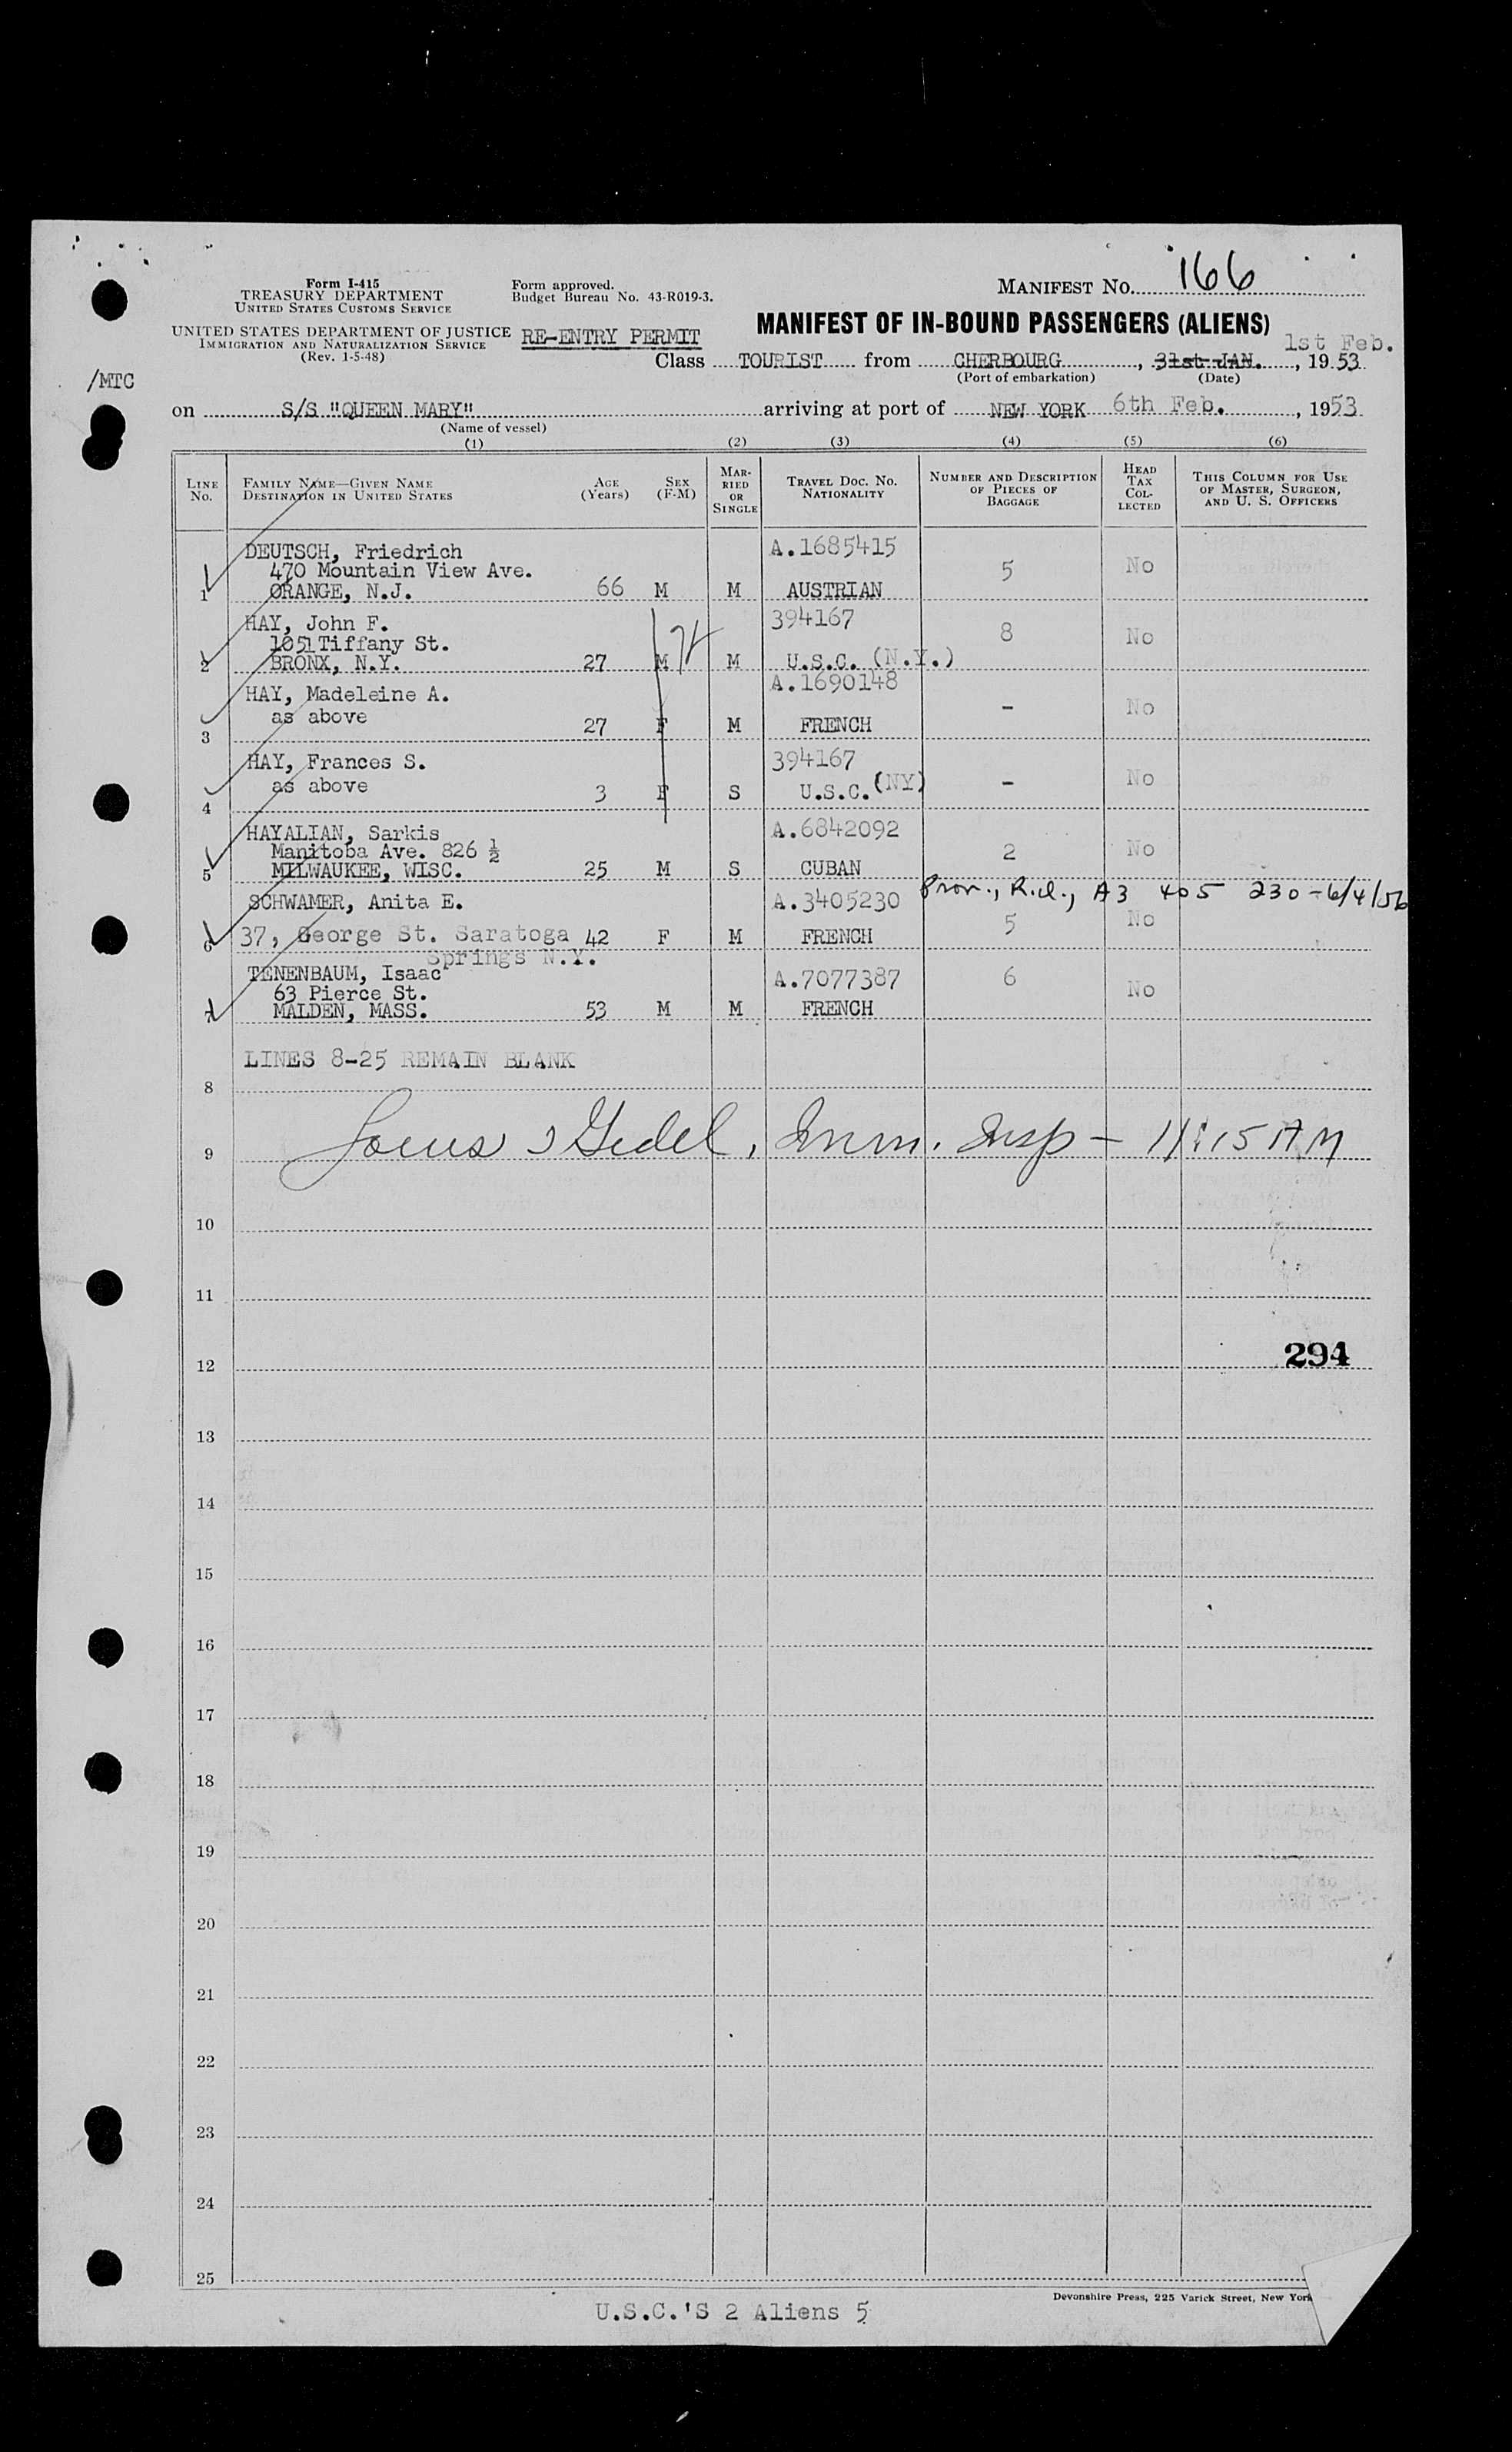 Form I-415
TREASURY DEPARTMENT
UNITED STATES CUSTOMS SERVICE
UNITED STATES DEPARTMENT OF JUSTICE
IMMIGRATION AND NATURALIZATION SERVICE
(Rev. 1-5-48)
Form approved.
Budget Bureau No. 43-R019-3.
RE-ENTRY PERMIT
MANIFEST NO. 166
MANIFEST OF IN-BOUND PASSENGERS (ALIENS)
1st Feb.
Class TOURIST from CHERBOURG, 31st JAN., 1953
(Port of embarkation) (Date)
/MTC
on S/S "QUEEN MARY" arriving at port of NEW YORK 6th Feb., 1953
(Name of vessel)
(1) (2) (3) (4) (5) (6)
LINE NO.
FAMILY NAME—GIVEN NAME
DESTINATION IN UNITED STATES
AGE (Years)
SEX (F-M)
MARRIED OR SINGLE
TRAVEL DOC. NO.
NATIONALITY
NUMBER AND DESCRIPTION OF PIECES OF BAGGAGE
HEAD TAX COLLECTED
THIS COLUMN FOR USE OF MASTER, SURGEON, AND U. S. OFFICERS
DEUTSCH, Friedrich A.1685415
470 Mountain View Ave. 5 No
1 ORANGE, N.J. 66 M M AUSTRIAN
HAY, John F. 394167
1051 Tiffany St. 8 No
2 BRONX, N.Y. 27 M M U.S.C. (N.Y.)
HAY, Madeleine A. A.1690148
as above - No
3 27 F M FRENCH
HAY, Frances S. 394167
as above - No
4 3 F S U.S.C. (NY)
HAYALIAN, Sarkis A.6842092
Manitoba Ave. 826 ½ 2 No
5 MILWAUKEE, WISC. 25 M S CUBAN
SCHWAMER, Anita E. A.3405230 Prov., R.I., A3 405 230-6/4/56
6 37, George St. Saratoga 42 F M FRENCH 5 No
Springs N.Y.
TENENBAUM, Isaac A.7077387 6
63 Pierce St. No
7 MALDEN, MASS. 53 M M FRENCH
LINES 8-25 REMAIN BLANK
8
9 Imm. Insp - 11:15 AM
10
11
12 294
13
14
15
16
17
18
19
20
21
22
23
24
25
Devonshire Press, 225 Varick Street, New York
U.S.C.'S 2 Aliens 5